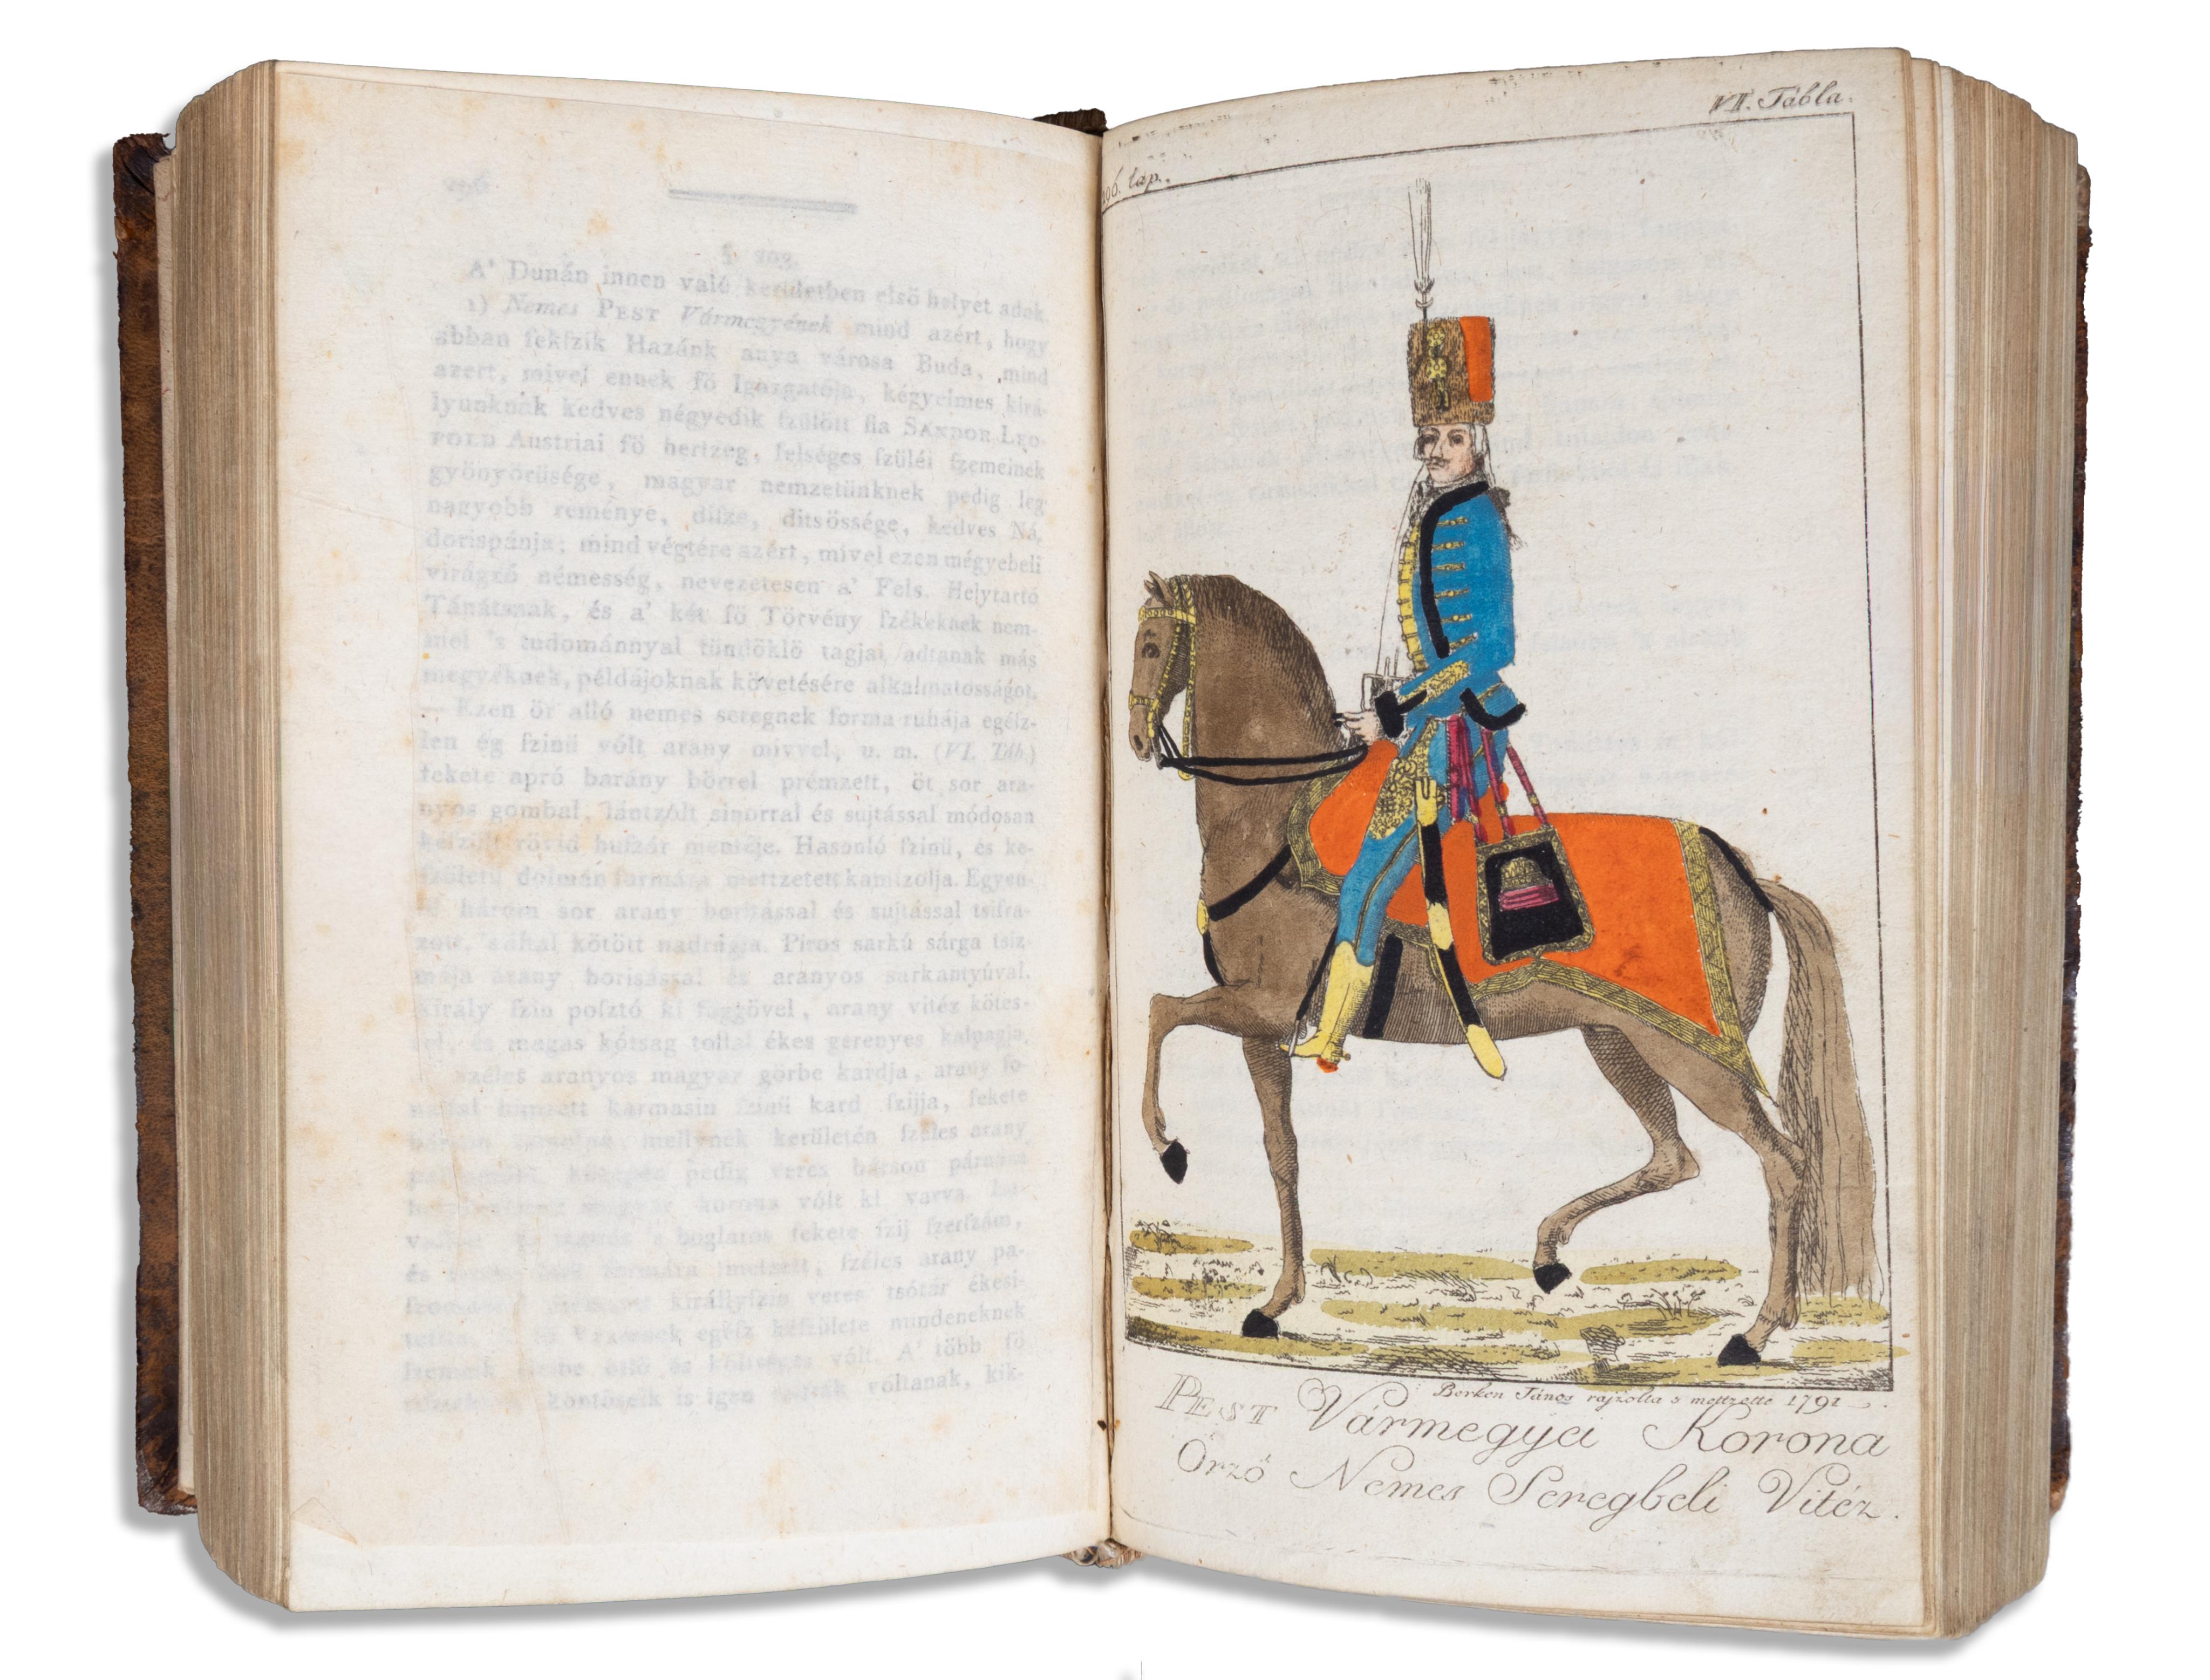 §. 203.
A' Dunán innen való kerületben elsö helyet adok
1) Nemes PEST Vármegyének mind azért, hogy
abban fekſzik Hazánk anya városa Buda, mind
azért, mivel ennek fö Igazgatója, kégyelmes kirá-
lyunknak kedves négyedik ſzülött fia SÁNDOR LEO-
POLD Austriai fö hertzeg, felséges ſzüléi ſzemeinek
gyönyörüsége, magyar nemzetünknek pedig leg
nagyobb reménye, díſze, ditsössége, kedves Ná-
dorispánja; mind végtére azért, mivel ezen mégyebeli
virágzó némesség, nevezetesen a' Fels. Helytartó
Tánátsnak, és a' két fö Törvény ſzékeknek nem-
mel 's tudománnyal tündöklö tagjai, adtanak más
megyéknek, példájoknak követésére alkalmatosságot.
— Ezen ör álló nemes seregnek forma ruhája egéſz-
ſzen ég ſzinü vólt arany mivvel, u. m. (VI. Táb.)
fekete apró bárány börrel prémzett, öt sor ara-
nyos gombal, lántzólt sinorral és sujtással módosan
kéſzült rövid huſzár mentéje. Hasonló ſzinü, és ké-
ſzületü dolmán formára mettzetett kamizolja. Egyen-
három sor arany borítással és sujtással tsifrá-
kötött nadrágja. Piros sarkú sárga tsiz-
mája arany borisással és aranyos sarkantyúval.
Király ſzin poſztó ki függövel, arany vitéz kötes-
és magas kótsag tollal ékes gerenyes kalpagja.
Széles aranyos magyar görbe kardja, arany fo-
nallal himzett karmasin ſzinü kard ſzijja, fekete
bárson mellynek kerületén ſzéles arany
közepén pedig veres bárson párnán
magyar korona vólt ki varva.
's boglaros fekete ſzij ſzerſzám,
és formára metzett, ſzéles arany pa-
királlyſzin veres tsótár ékesí-
egéſz kéſzülete mindeneknek
ſzemeik ötlö és költséges vólt. A' több fö
köntöseik is igen vóltanak, kik-
VII. Tábla.
206. lap.
Berken János rajzolta s mettzette 1791
PEST Vármegyei Korona
Orzó Nemes Seregbeli Vitéz.